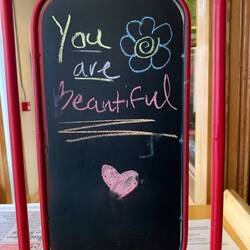 You
are
Beautiful